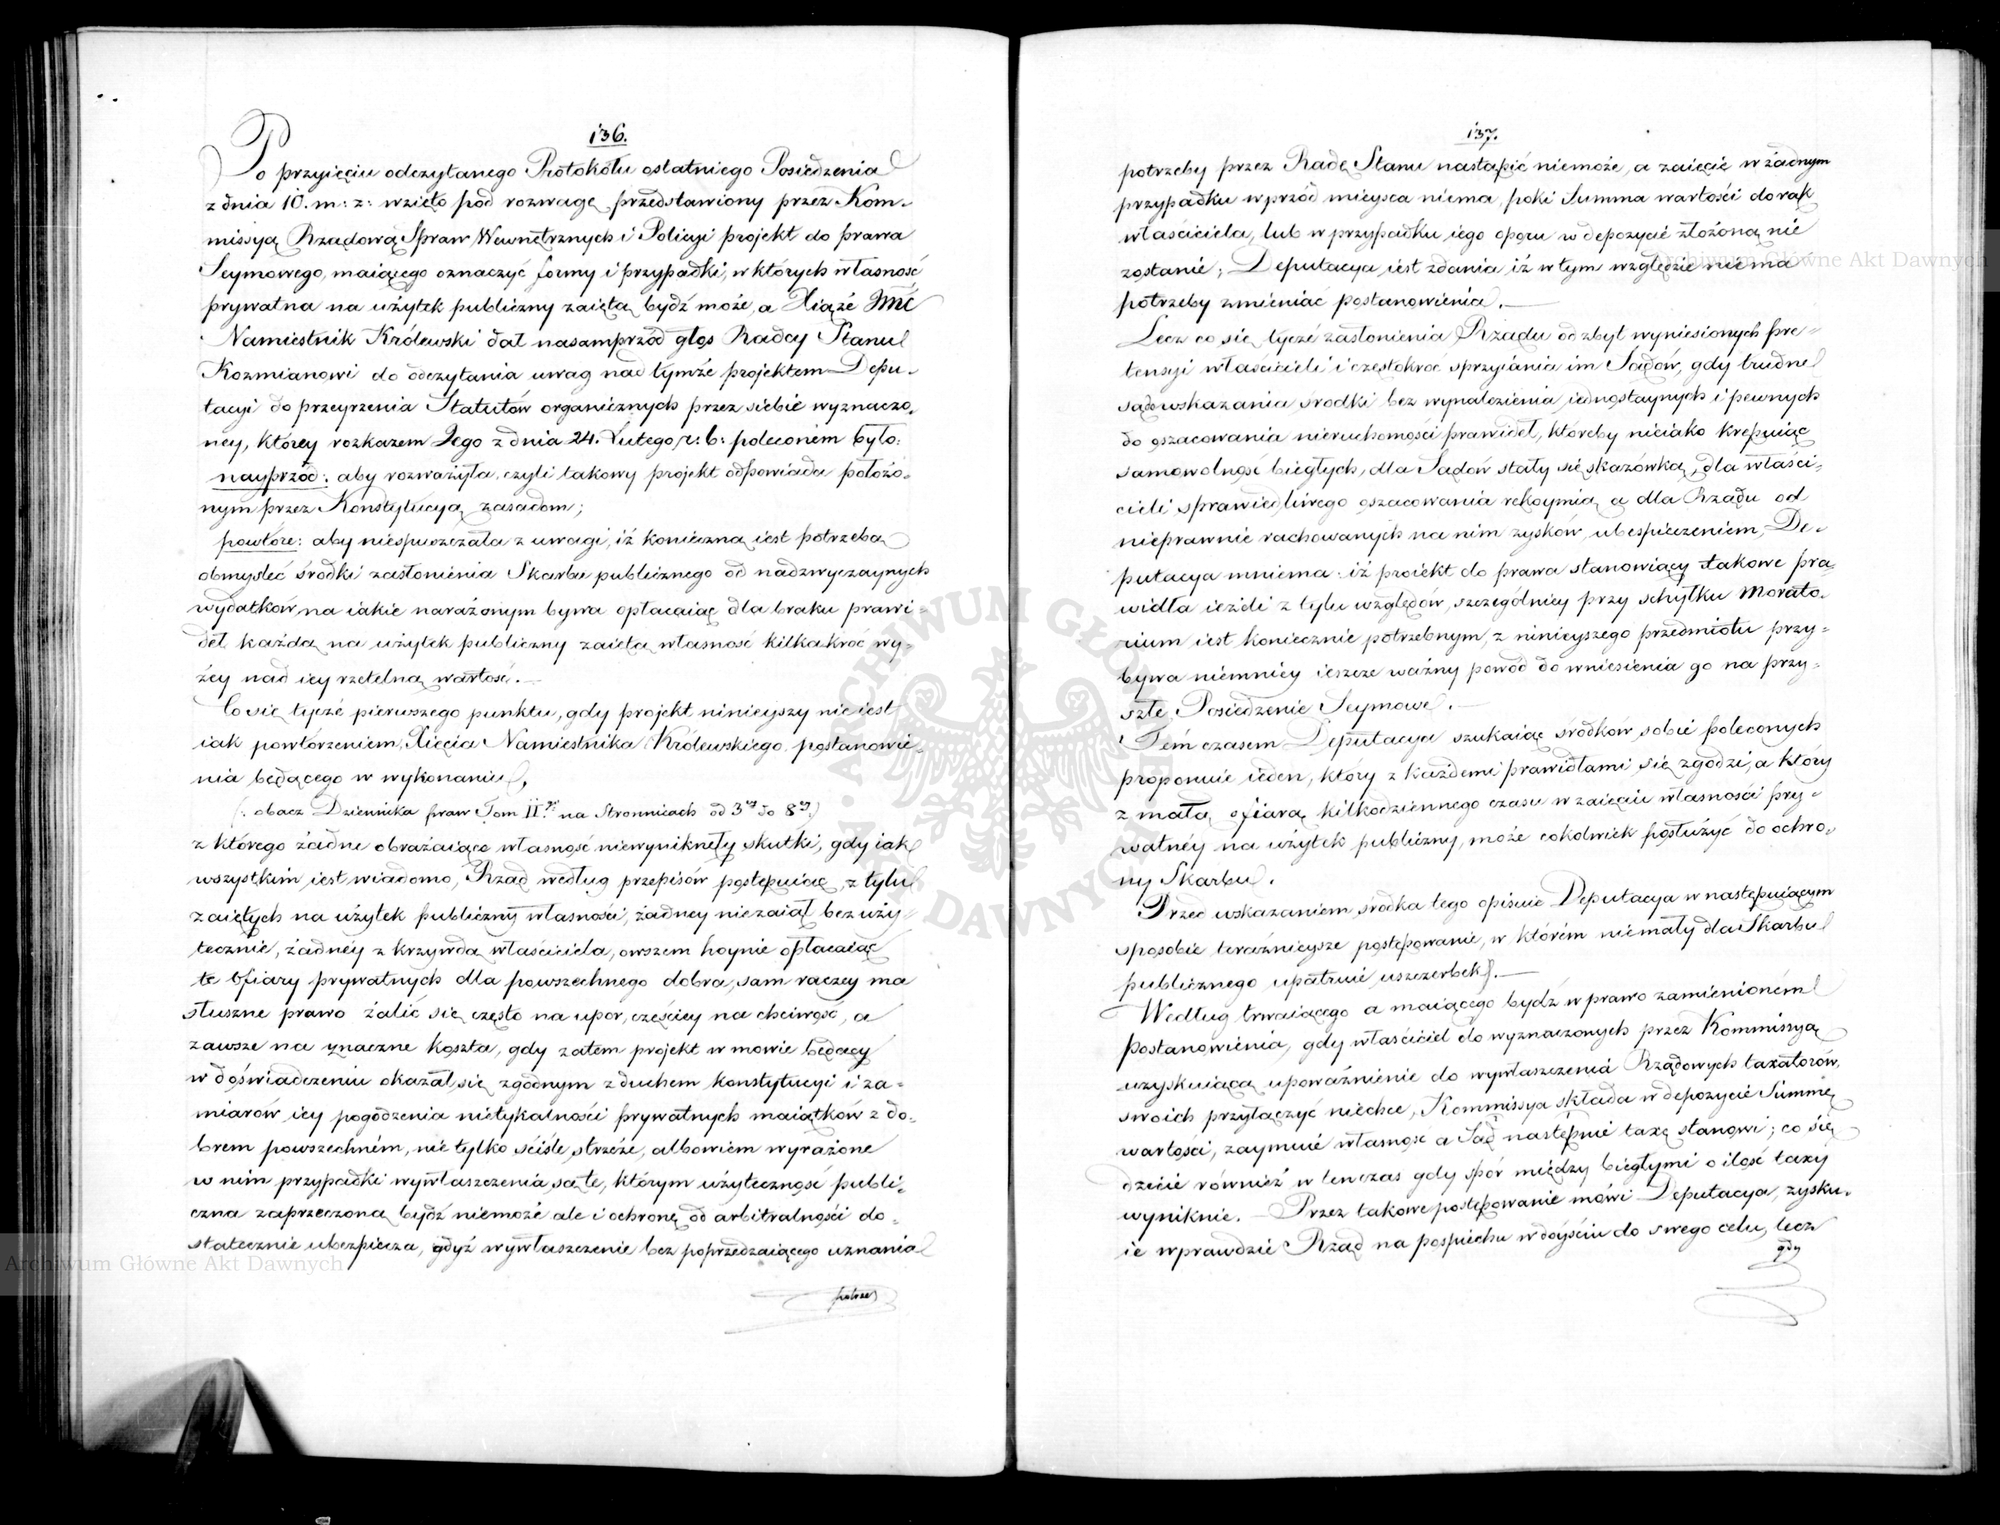 136.
Po przyięciu odczytanego Protokółu ostatniego Posiedzenia
z dnia 10. m: z: wzięto pod rozwagę przedstawiony przez Kom-
missyą Rządową Spraw Wewnętrznych i Policyi projekt do prawa
Seymowego, maiącego oznaczyć formy i przypadki, w których własność
prywatna na użytek publiczny zaiętą bydź może, a Xiąże JMć
Namiestnik Królewski dał nasamprzód głos Radcy Stanu
Kozmianowi do odczytania uwag nad tymże projektem Depu-
tacyi do przeyrzenia Statutów organicznych przez siebie wyznaczo-
ney, którey rozkazem Jego z dnia 24. Lutego r: b: poleconém było:
nayprzód: aby rozważyła, czyli takowy projekt odpowiada położo-
nym przez Konstytucyą zasadom;
powtóre: aby niespuszczała z uwagi, iż konieczną iest potrzebą
obmyśleć środki zasłonienia Skarbu publicznego od nadzwyczaynych
wydatków, na iakie narażonym bywa opłacaiąc dla braku prawi-
deł każdą na użytek publiczny zaiętą własność kilkakroć wy-
żey nad iey rzetelną wartość.
Co się tycze pierwszego punktu, gdy projekt ninieyszy nie iest
iak powtórzeniem Xięcia Namiestnika Królewskiego postanowie-
nia będącego w wykonaniu,
(: obacz Dziennika praw Tom IIgi na Stronnicach od 3ey do 8ey)
z którego żadne obrażaiące własność niewyniknęły skutki, gdy iak
wszystkim iest wiadomo, Rząd według przepisów postępuiąc, z tylu
zaiętych na użytek publiczny własności, żadney niezaiął bez uży-
tecznie, żadnéy z krzywdą właściciela, owszem hoynie opłacaiąc
te ofiary prywatnych dla powszechnego dobra, sam raczey ma
słuszne prawo żalić się często na upor, częściey na chciwość, a
zawsze na znaczne koszta, gdy zatem projekt w mowie będący
w doświadczeniu okazał się zgodnym z duchem konstytucyi i za-
miarów iey pogodzenia nietykalności prywatnych maiątków z do-
brem powszechném, nie tylko ściśle strzeże, albowiem wyrażone
w nim przypadki wywłaszczenia są te, którym użyteczność publi-
czna zaprzeczoną bydź niemoże ale i ochronę od arbitralności do-
statecznie ubezpiecza, gdyż wywłaszczenie bez poprzedzaiącego uznania
potrze
137.
potrzeby przez Radę Stanu nastąpić niemoże, a zaięcie w żadnym
przypadku wprzód mieysca niema, poki Summa wartości do rąk
właściciela, lub w przypadku iego oporu w depozycie złożoną nie
zostanie; Deputacya iest zdania iż w tym względzie niema
potrzeby zmieniać postanowienia.
Lecz co się tycze zasłonienia Rządu od zbyt wyniesionych pre-
tensyi właścicieli i częstokroć sprzyiania im Sądów, gdy trudne
są do wskazania srodki bez wynalezienia iednostaynych i pewnych
do oszacowania nieruchomości prawideł, któreby nieiako krępuiąc
samowolność biegłych, dla Sądów stały się skazówką, dla właści-
cieli sprawiedliwego oszacowania rękoymią a dla Rządu od
nieprawnie rachowanych na nim zysków ubespieczeniem, De-
putacya mniema: iż proiekt do prawa stanowiący takowe pra-
widła ieżeli z tylu względów, szczególniey przy schyłku Morato-
rium iest koniecznie potrzebnym, z ninieyszego przedmiotu przy-
bywa niemniey ieszcze ważny powód do wniesienia go na przy-
szłe Posiedzenie Seymowe.
Tém czasem Deputacya szukaiąc środków sobie poleconych
proponuie ieden, który z każdemi prawidłami się zgodzi, a który
z małą ofiarą kilkodziennego czasu w zaięciu własności pry-
watnéy na użytek publiczny, może cokolwiek posłużyć do ochro-
ny Skarbu.
Przed wskazaniem srodka tego opisuie Deputacya w następuiącym
sposobie teraźnieysze postępowanie, w którém niemały dla Skarbu
publicznego upatruie uszczerbek.
Według trwaiącego a maiącego bydź w prawo zamienioném
Postanowienia, gdy właściciel do wyznaczonych przez Kommissyą
uzyskuiącą upoważnienie do wywłaszczenia Rządowych taxatorów,
swoich przyłączyć niechce, Kommissya składa w depozycie Summę
wartości, zaymuie własność a Sąd następnie taxę stanowi; co się
dzieie również w tenczas gdy spór między biegłymi o ilość taxy
wyniknie. Przez takowe postępowanie mówi Deputacya, zysku-
ie wprawdzie Rząd na pospiechu w dóyściu do swego celu, lecz
gdy
Archiwum Główne Akt Dawnych
Archiwum Główne Akt Dawnych
ARCHIWUM GŁÓWNE AKT DAWNYCH